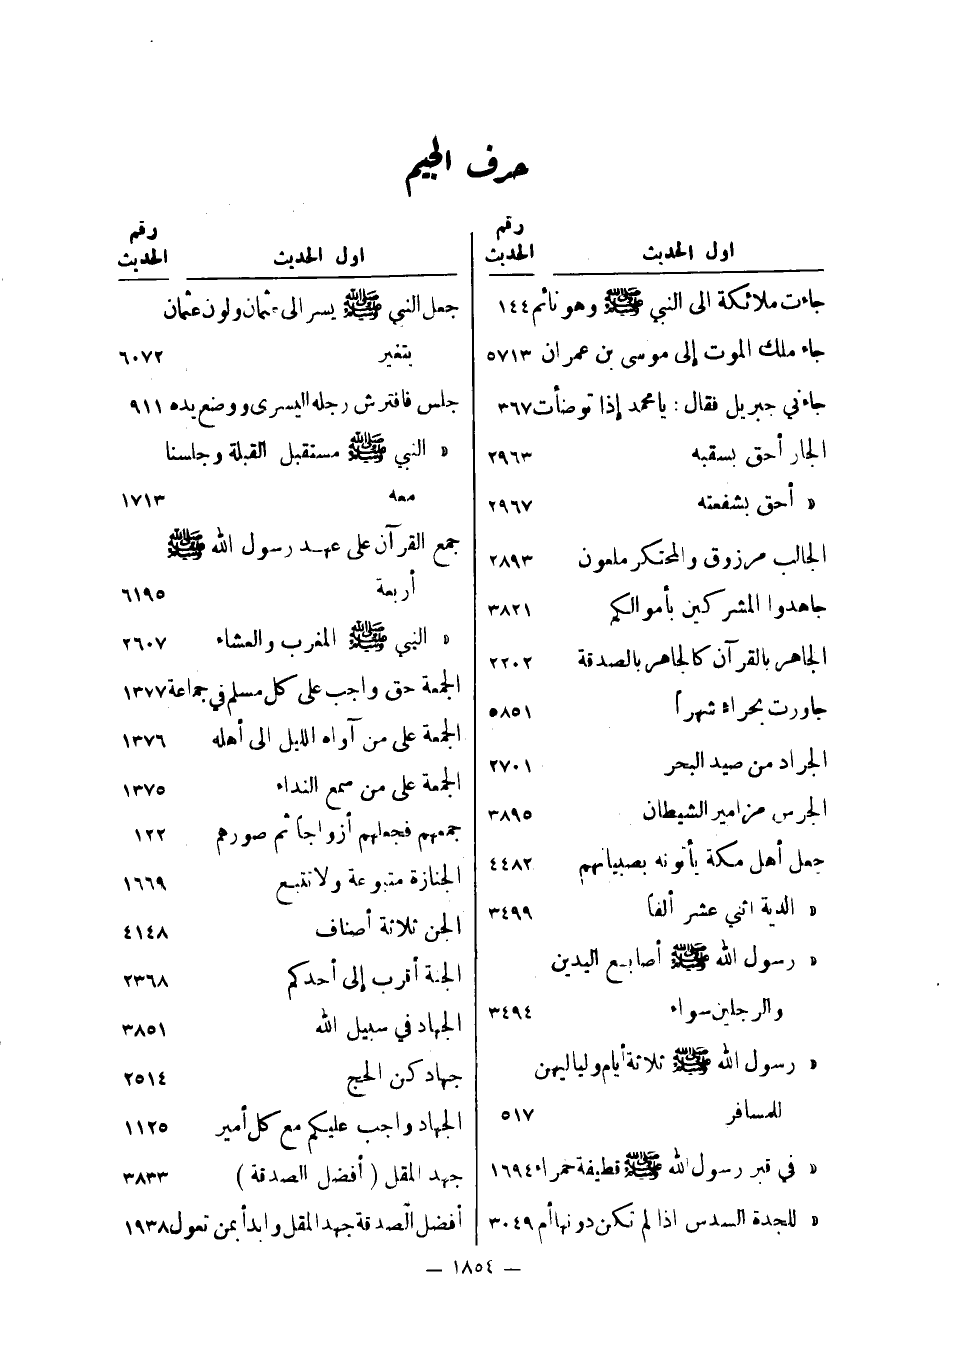 حرف الجيم
اول الحديث
رقم
الحديث
جاءت ملائكة الى النبي ﷺ وهو نائم ١٤٤
جاء ملك الموت إلى موسى بن عمران ٥٧١٣
جاءني جبريل فقال : يا محمد إذا توضأت ٣٦٧
الجار أحق بسقبه ٢٩٦٣
» أحق بشفعته ٢٩٦٧
الجالب مرزوق والمحتكر ملعون ٢٨٩٣
جاهدوا المشركين بأموالكم ٣٨٢١
الجاهر بالقرآن كالجاهر بالصدقة ٢٢٠٢
جاورت بحراء شهراً ٥٨٥١
الجراد من صيد البحر ٢٧٠١
الجرس مزامير الشيطان ٣٨٩٥
جعل أهل مكة يأتونه بصبيانهم ٤٤٨٢
» الدية اثني عشر ألفا ٣٤٩٩
» رسول الله ﷺ أصابع اليدين
والرجلين سواء ٣٤٩٤
» رسول الله ﷺ ثلاثة أيام ولياليهن
للمسافر ٥١٧
» في قبر رسول الله ﷺ قطيفة حمراء ١٦٩٤
» للجدة السدس اذا لم تكن دونها أم ٣٠٤٩
اول الحديث
رقم
الحديث
جعل النبي ﷺ يسر الى عثمان ولون عثمان
يتغير ٦٠٧٢
جلس فافترش رجله اليسرى ووضع يده ٩١١
» النبي ﷺ مستقبل القبلة وجلسنا
معه ١٧١٣
جمع القرآن على عهد رسول الله ﷺ
أربعة ٦١٩٥
» النبي ﷺ المغرب والعشاء ٢٦٠٧
الجمعة حق واجب على كل مسلم في جماعة ١٣٧٧
الجمعة على من آواه الليل الى أهله ١٣٧٦
الجمعة على من سمع النداء ١٣٧٥
جمعهم فجعلهم أزواجاً ثم صورهم ١٢٢
الجنازة متبوعة ولا تتبع ١٦٦٩
الجن ثلاثة أصناف ٤١٤٨
الجنة أقرب إلى أحدكم ٢٣٦٨
الجهاد في سبيل الله ٣٨٥١
جهادكن الحج ٢٥١٤
الجهاد واجب عليكم مع كل أمير ١١٢٥
جهد المقل ( أفضل الصدقة ) ٣٨٣٣
أفضل الصدقة جهد المقل وابدأ بمن تعول ١٩٣٨
— ١٨٥٤ —